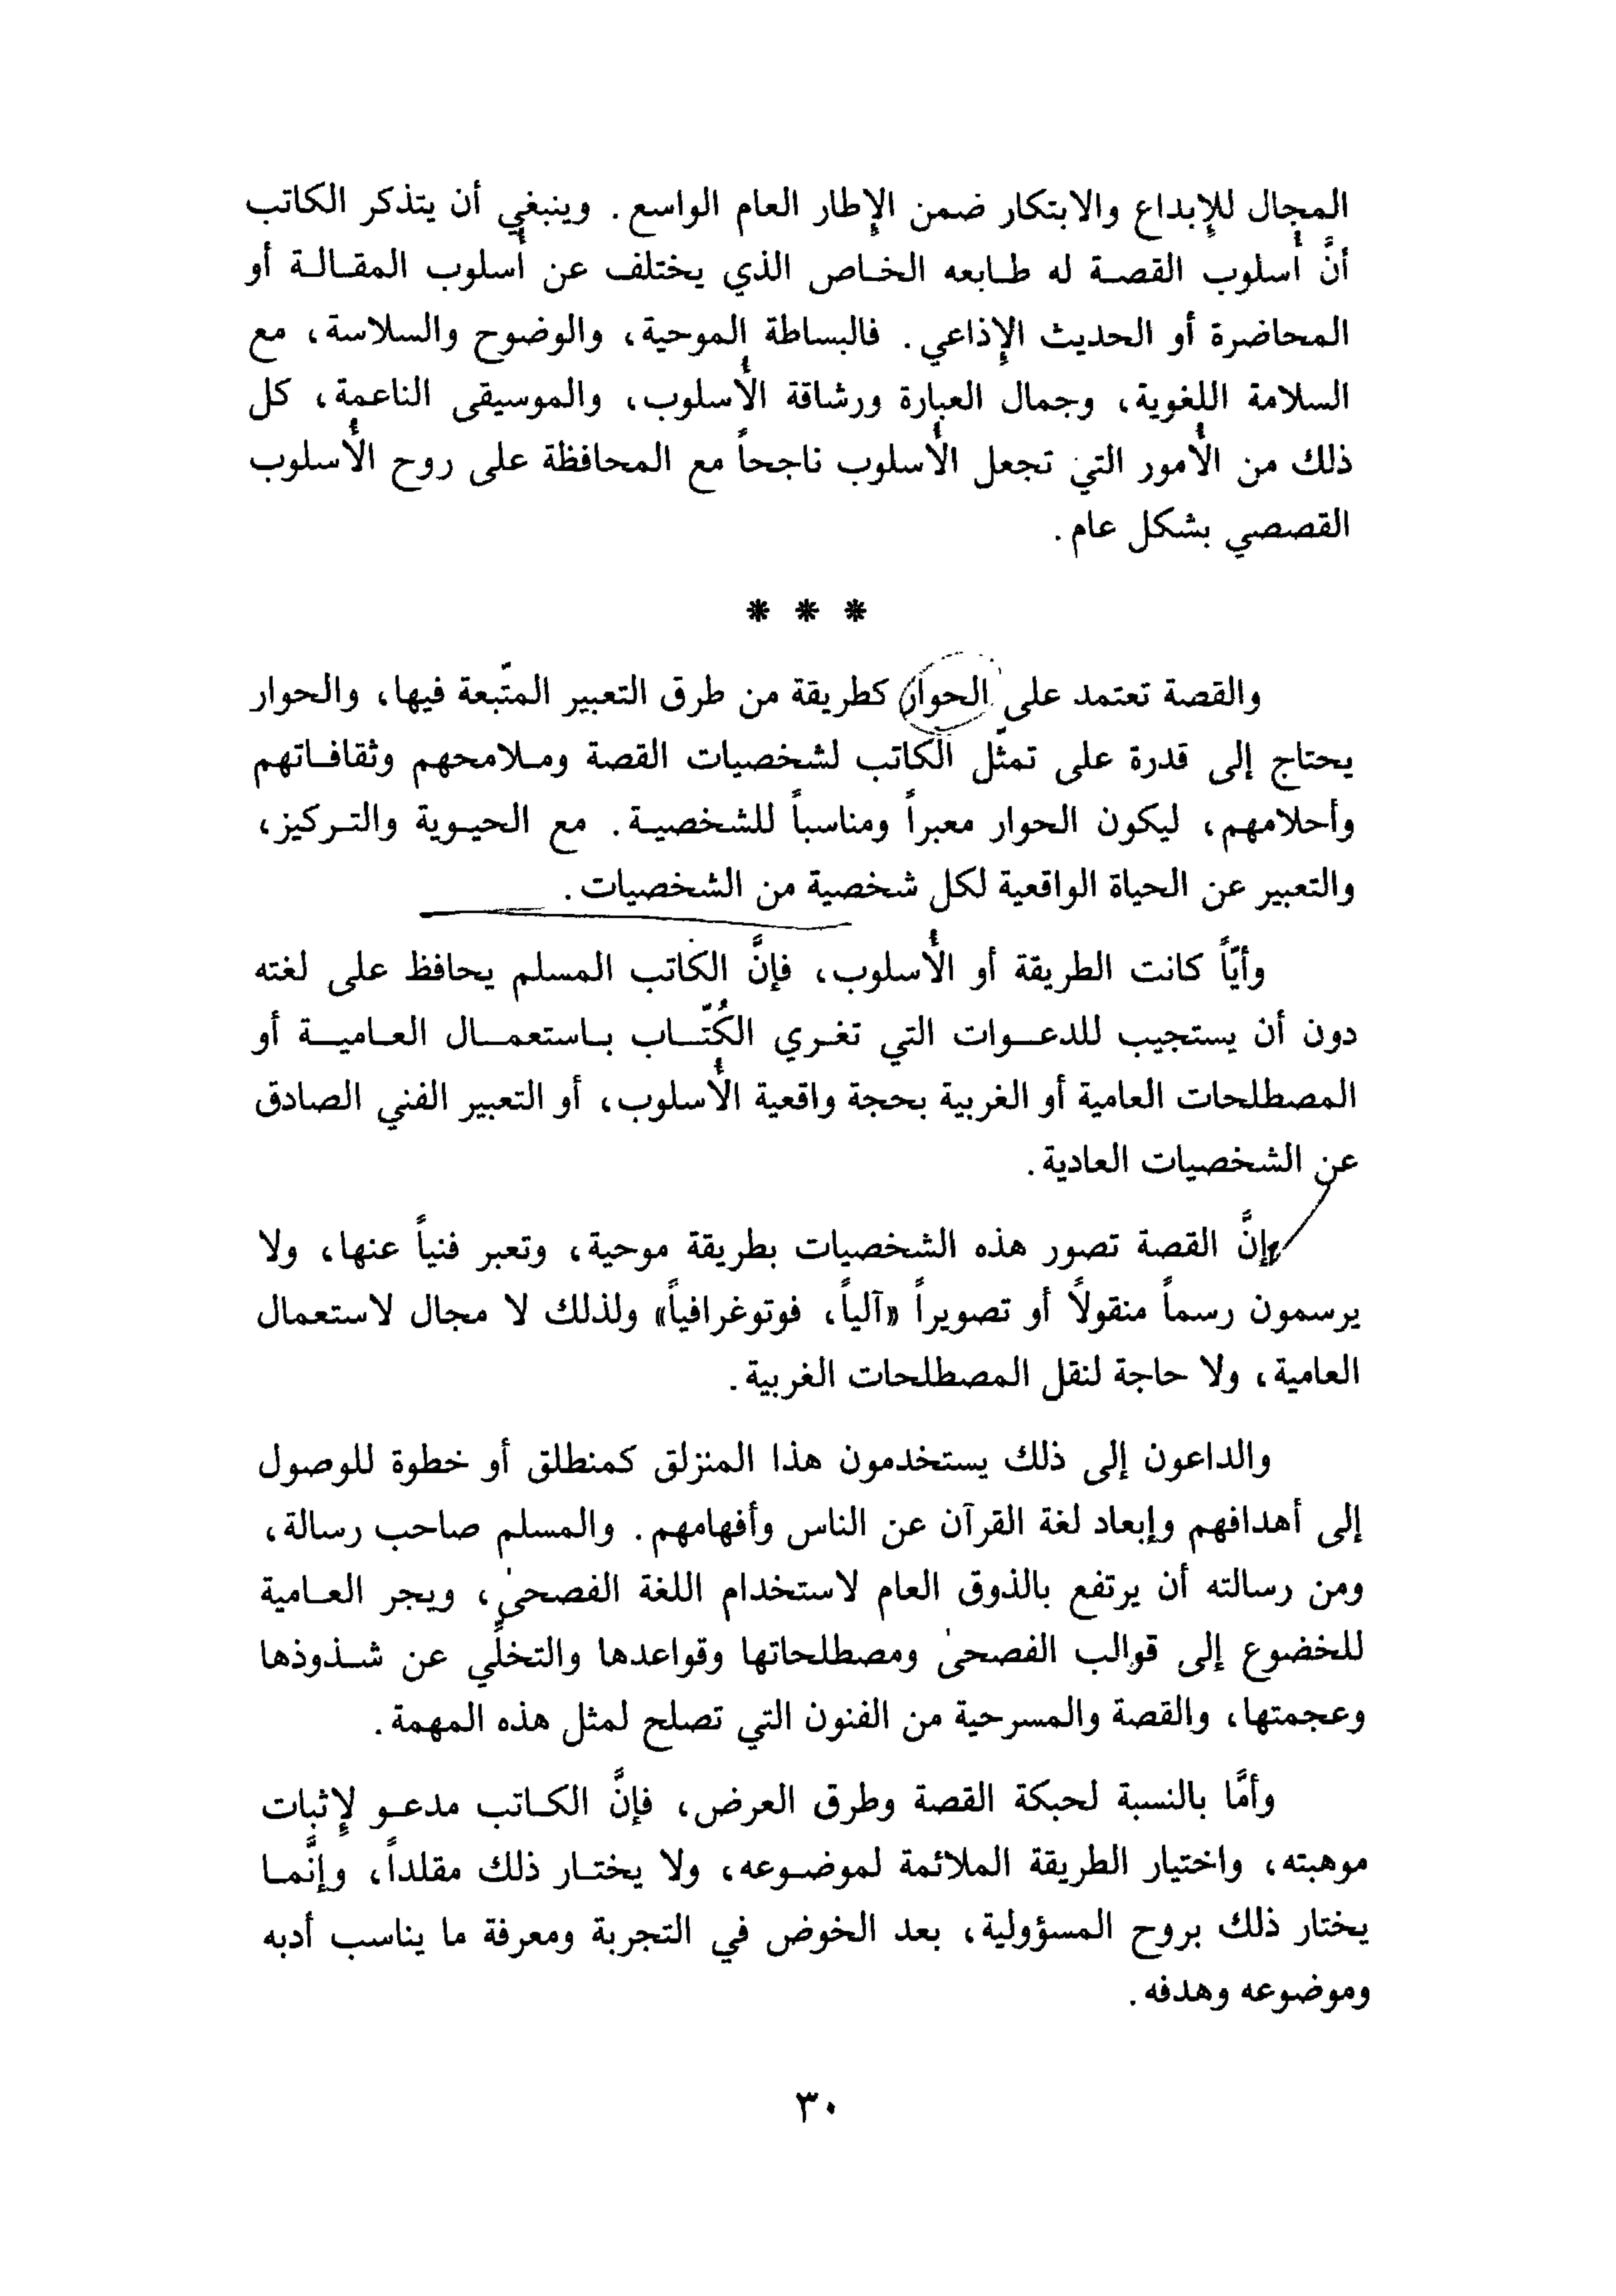 المجال للإبداع والابتكار ضمن الإطار العام الواسع. وينبغي أن يتذكر الكاتب
أنَّ أُسلوب القصة له طابعه الخاص الذي يختلف عن أُسلوب المقالة أو
المحاضرة أو الحديث الإذاعي. فالبساطة الموحية، والوضوح والسلاسة، مع
السلامة اللغوية، وجمال العبارة ورشاقة الأُسلوب، والموسيقى الناعمة، كل
ذلك من الأُمور التي تجعل الأُسلوب ناجحاً مع المحافظة على روح الأُسلوب
القصصي بشكل عام.
* * *
والقصة تعتمد على الحوار كطريقة من طرق التعبير المتّبعة فيها، والحوار
يحتاج إلى قدرة على تمثّل الكاتب لشخصيات القصة وملامحهم وثقافاتهم
وأحلامهم، ليكون الحوار معبراً ومناسباً للشخصية. مع الحيوية والتركيز،
والتعبير عن الحياة الواقعية لكل شخصية من الشخصيات.
وأيّاً كانت الطريقة أو الأُسلوب، فإنَّ الكاتب المسلم يحافظ على لغته
دون أن يستجيب للدعوات التي تغري الكُتّاب باستعمال العامية أو
المصطلحات العامية أو الغربية بحجة واقعية الأُسلوب، أو التعبير الفني الصادق
عن الشخصيات العادية.
إنَّ القصة تصور هذه الشخصيات بطريقة موحية، وتعبر فنياً عنها، ولا
يرسمون رسماً منقولاً أو تصويراً «آلياً، فوتوغرافياً» ولذلك لا مجال لاستعمال
العامية، ولا حاجة لنقل المصطلحات الغربية.
والداعون إلى ذلك يستخدمون هذا المنزلق كمنطلق أو خطوة للوصول
إلى أهدافهم وإبعاد لغة القرآن عن الناس وأفهامهم. والمسلم صاحب رسالة،
ومن رسالته أن يرتفع بالذوق العام لاستخدام اللغة الفصحىٰ، ويجر العامية
للخضوع إلى قوالب الفصحىٰ ومصطلحاتها وقواعدها والتخلِّي عن شذوذها
وعجمتها، والقصة والمسرحية من الفنون التي تصلح لمثل هذه المهمة.
وأمَّا بالنسبة لحبكة القصة وطرق العرض، فإنَّ الكاتب مدعو لإثبات
موهبته، واختيار الطريقة الملائمة لموضوعه، ولا يختار ذلك مقلداً، وإنَّما
يختار ذلك بروح المسؤولية، بعد الخوض في التجربة ومعرفة ما يناسب أدبه
وموضوعه وهدفه.
٣٠